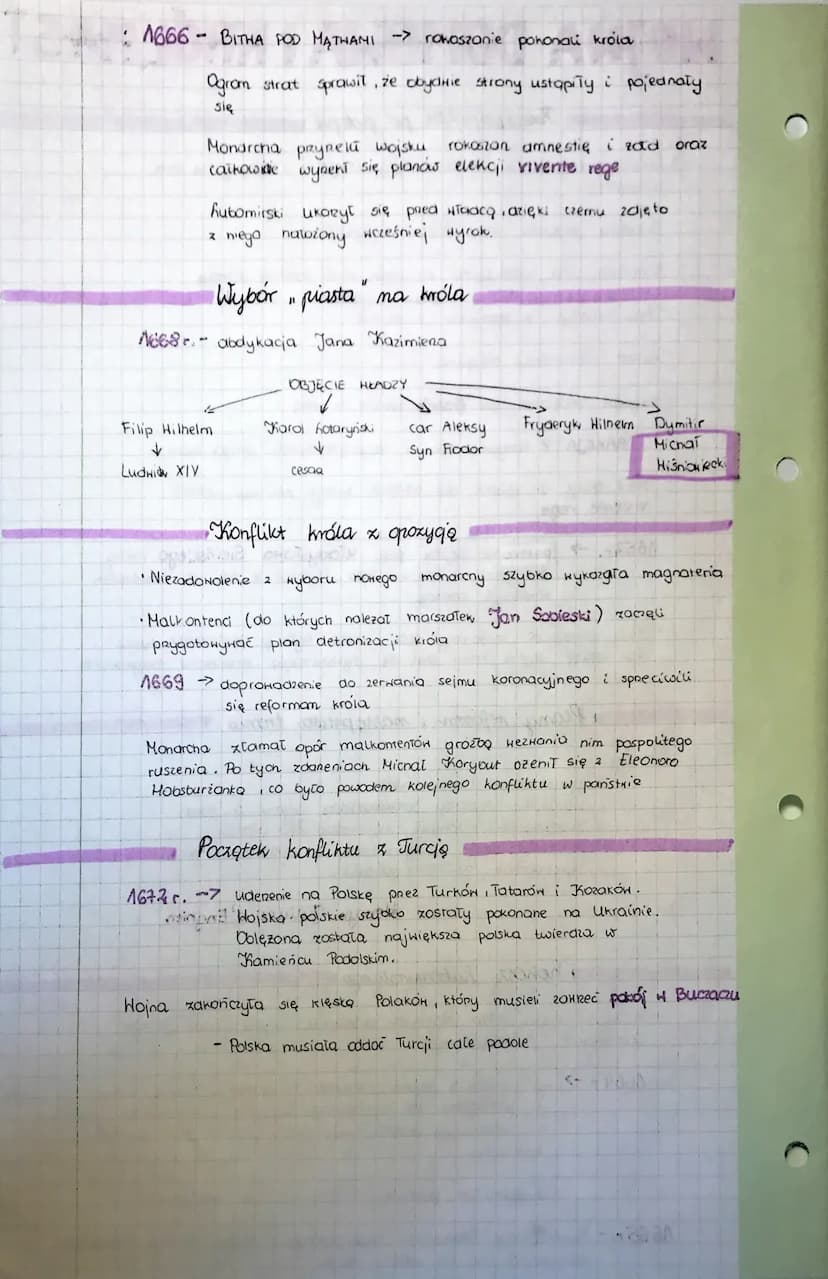 : 1666 - BITWA POD MĄTWAMI -> rokoszanie pokonali króla
Ogrom strat sprawił, że obydwie strony ustąpiły i pojednały
się
Monarcha przyrzekł wojsku rokoszan amnestię i żołd oraz
całkowicie wyparł się planów elekcji vivente rege
Lubomirski ukorzył się przed władcą, dzięki czemu zdjęto
z niego nałożony wcześniej wyrok.
Wybór "piasta" na króla
1668 r. - abdykacja Jana Kazimierza
OBJĘCIE WŁADZY
Filip Wilhelm Karol Lotaryński car Aleksy Fryderyk Wilhelm Dymitr
↓ ↓ Syn Fiodor Michał
Ludwik XIV cesarz Wiśniowiecki
Konflikt króla z opozycją
• Niezadowolenie z wyboru nowego monarchy szybko wykazała magnateria
• Malkontenci (do których należał marszałek Jan Sobieski) zaczęli
przygotowywać plan detronizacji króla
1669 -> doprowadzenie do zerwania sejmu koronacyjnego i sprzeciwili
się reformom króla
Monarcha złamał opór malkomentów groźbą wezwania nim pospolitego
ruszenia. Po tych zdarzeniach Michał Korybut ożenił się z Eleonorą
Habsburżanką, co było powodem kolejnego konfliktu w państwie
Początek konfliktu z Turcją
1672 r. ~> uderzenie na Polskę przez Turków, Tatarów i Kozaków.
Wojska polskie szybko zostały pokonane na Ukrainie.
Oblężona została największa polska twierdza w
Kamieńcu Podolskim.
Wojna zakończyła się klęską Polaków, który musieli zawrzeć pokój w Buczaczu
- Polska musiała oddać Turcji całe podole